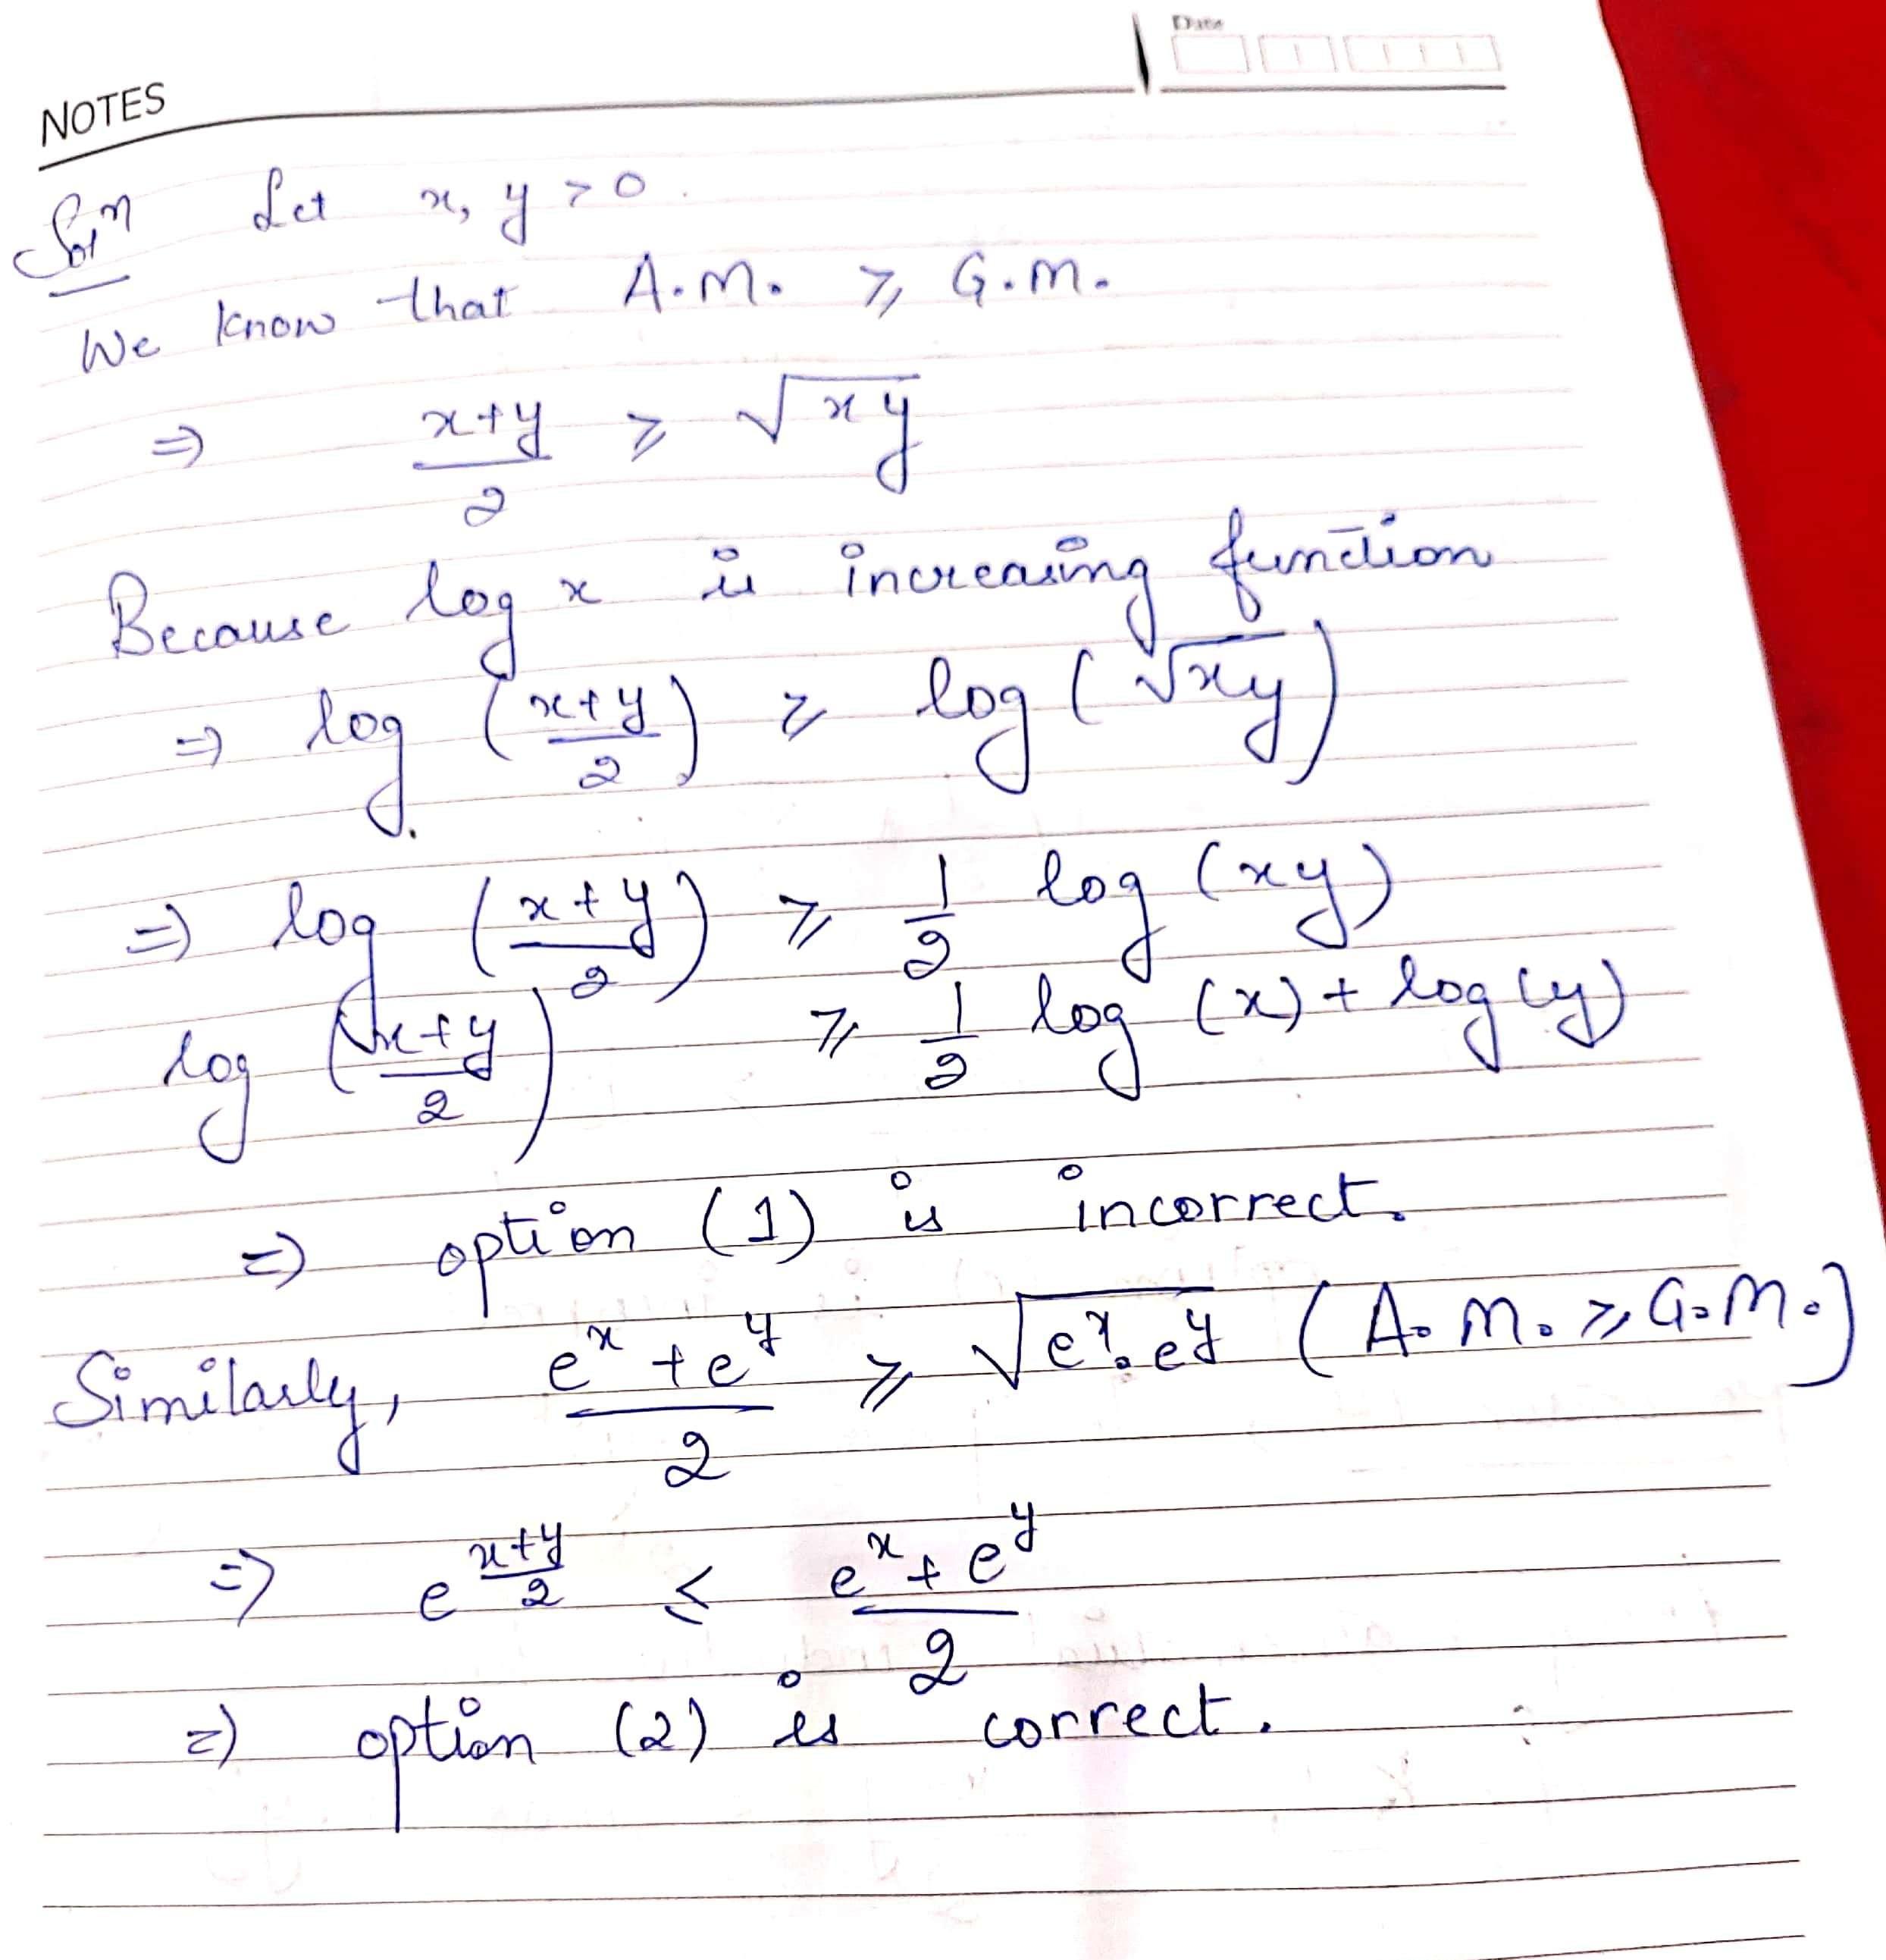 Date
NOTES
Solⁿ Let x, y > 0.
We know that A.M. ⩾ G.M.
⇒ (x+y)/2 ⩾ √(xy)
Because log x is increasing function
⇒ log ((x+y)/2) ⩾ log (√(xy))
⇒ log ((x+y)/2) ⩾ 1/2 log (xy)
log ((x+y)/2) ⩾ 1/2 log (x) + log (y)
⇒ option (1) is incorrect.
Similarly, (e^x + e^y)/2 ⩾ √(e^x . e^y) (A.M. ⩾ G.M.)
⇒ e^((x+y)/2) ⩽ (e^x + e^y)/2
⇒ option (2) is correct.